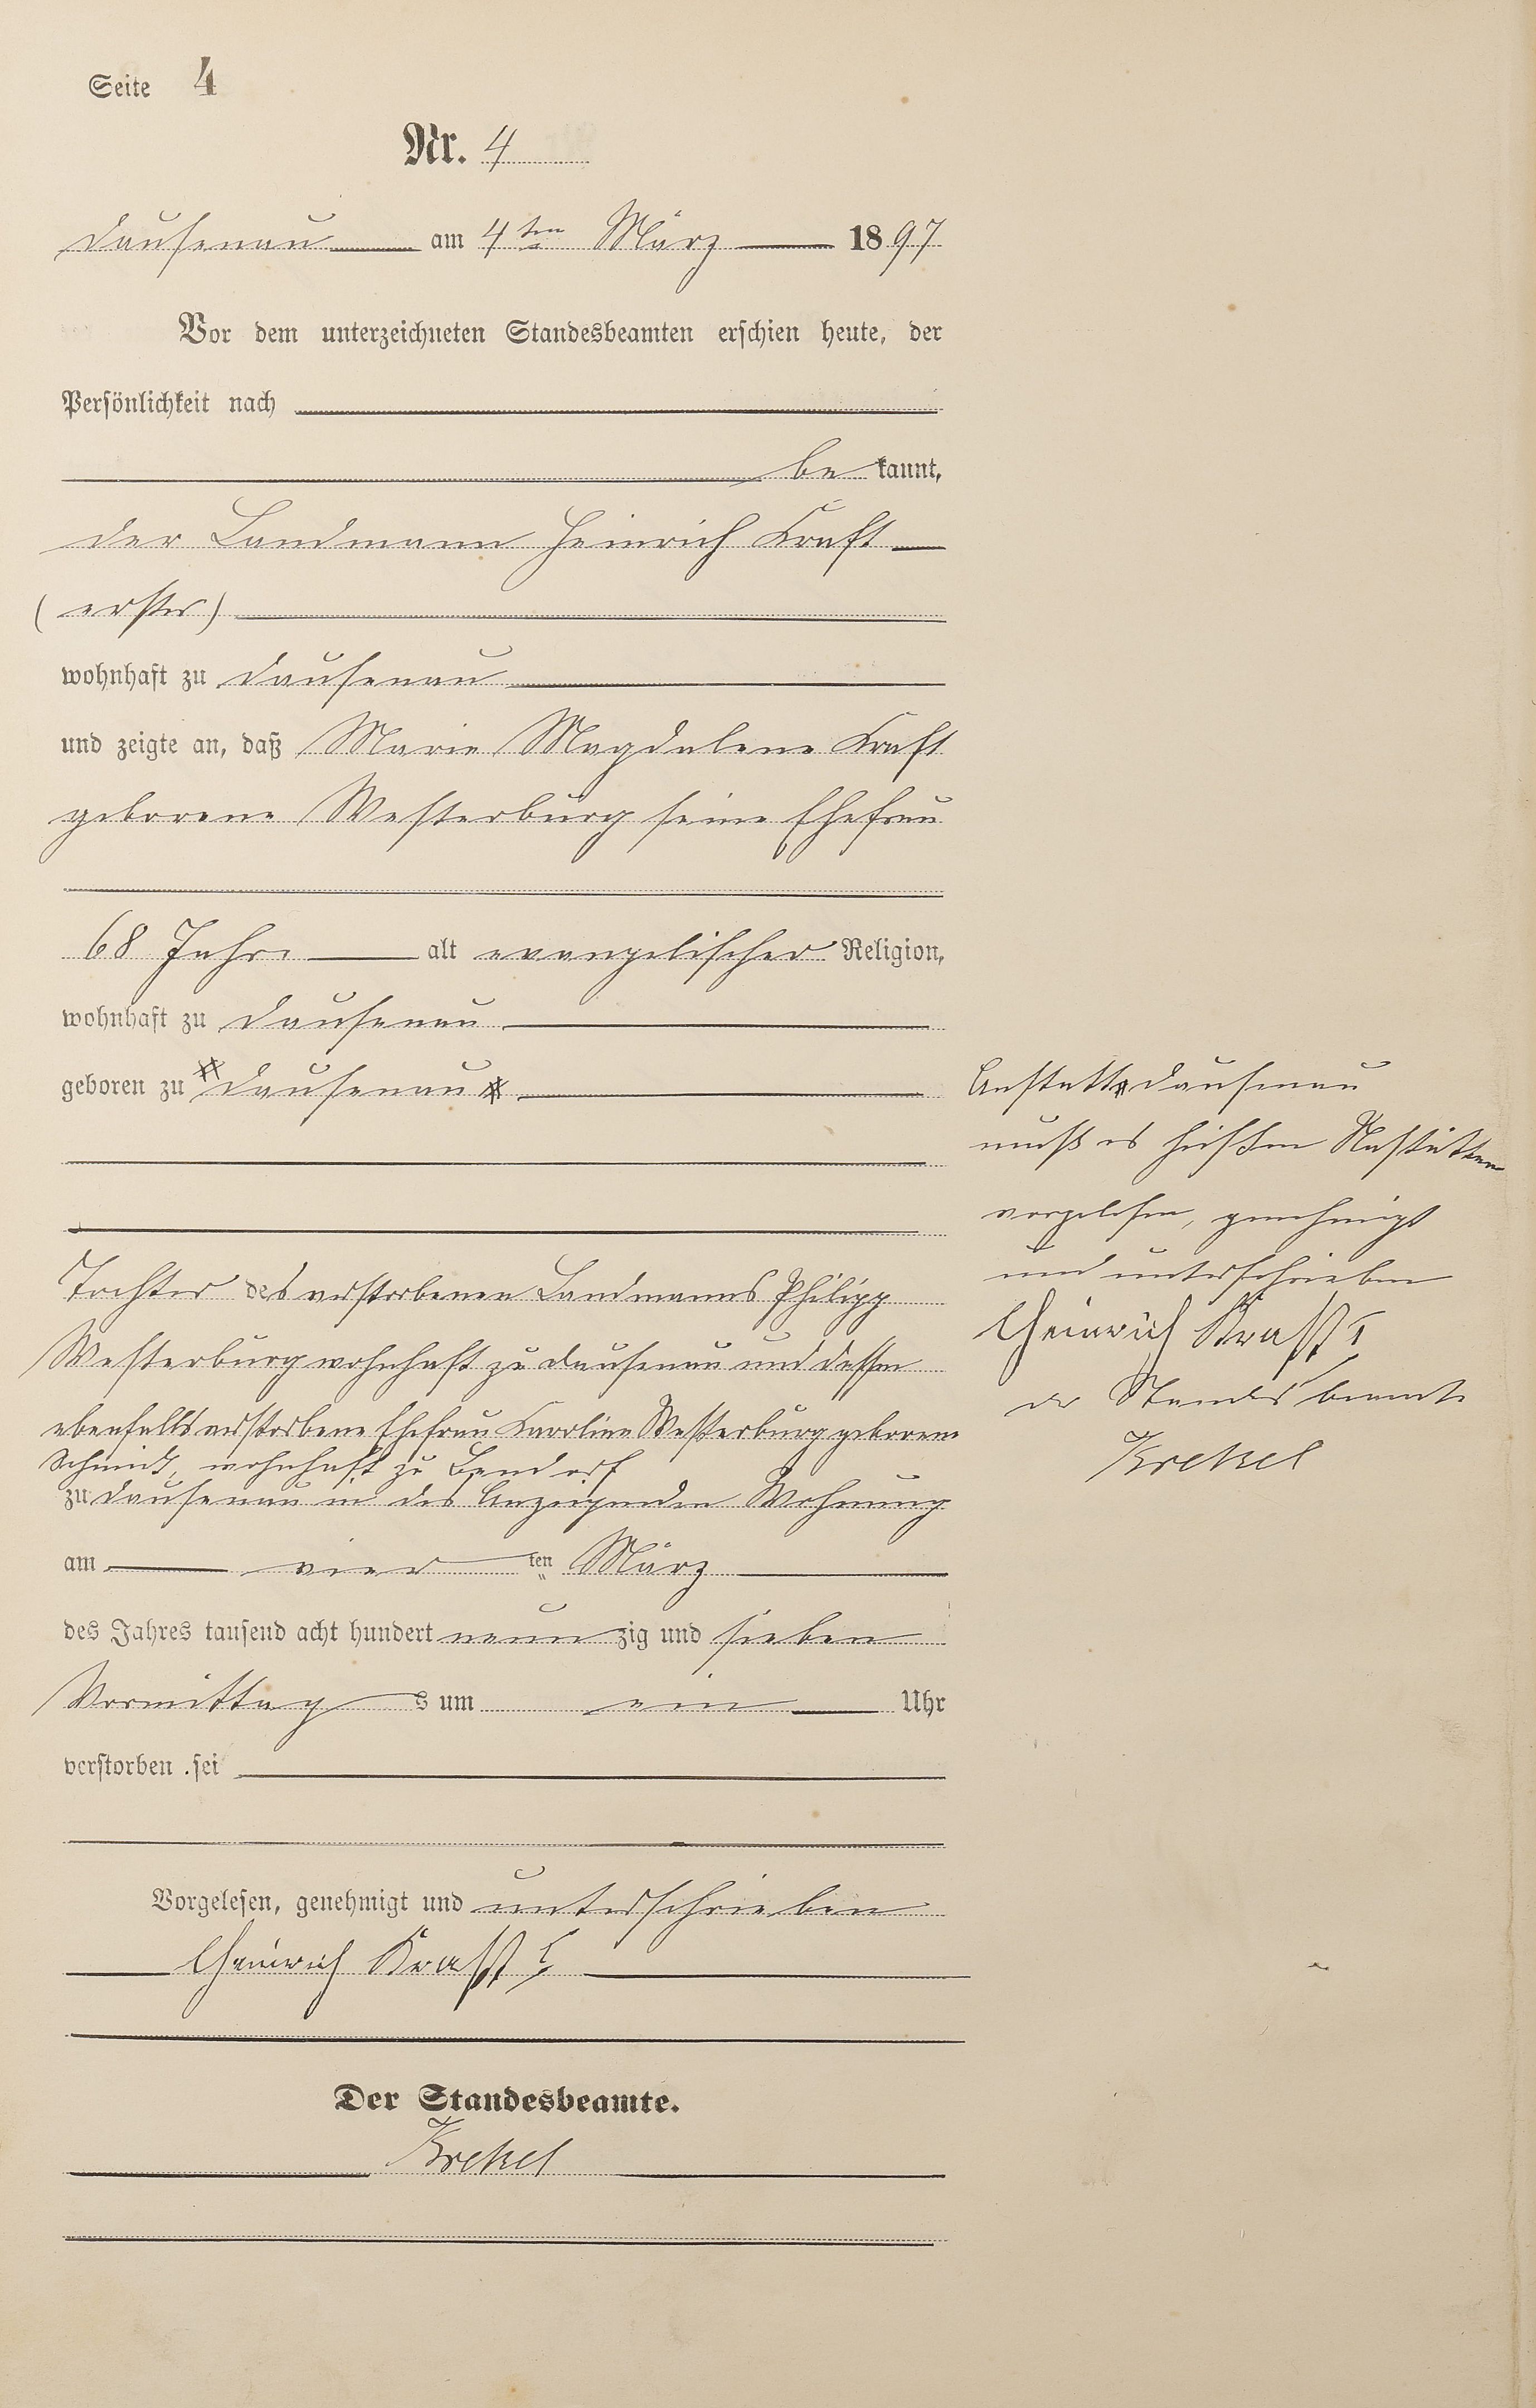 Seite 4
Nr. 4
Dausenau am 4ten März 1897
Vor dem unterzeichneten Standesbeamten erschien heute, der
Persönlichkeit nach
bekannt,
der Landmann Heinrich Kraft
(erster)
wohnhaft zu Dausenau
und zeigte an, daß Marie Magdalene Kraft
geborene Westerburg seine Ehefrau
68 Jahre alt evangelischer Religion,
wohnhaft zu Dausenau
geboren zu Dausenau
Tochter des verstorbenen Landmanns Philipp
Westerburg wohnhaft zu Dausenau und dessen
ebenfalls verstorbene Ehefrau Karoline Westerburg geborene
Schmidt, wohnhaft zu
zu Dausenau in des Anzeigenden Wohnung
am vierten März
des Jahres tausend acht hundert neunzig und sieben
Vormittags um ein Uhr
verstorben sei
Vorgelesen, genehmigt und unterschrieben
Heinrich Kraft I
Der Standesbeamte.
Krekel
Anstatt Dausenau
muß es heißen Nastätten
vorgelesen, genehmigt
und unterschrieben
Heinrich Kraft I
der Standesbeamte
Krekel